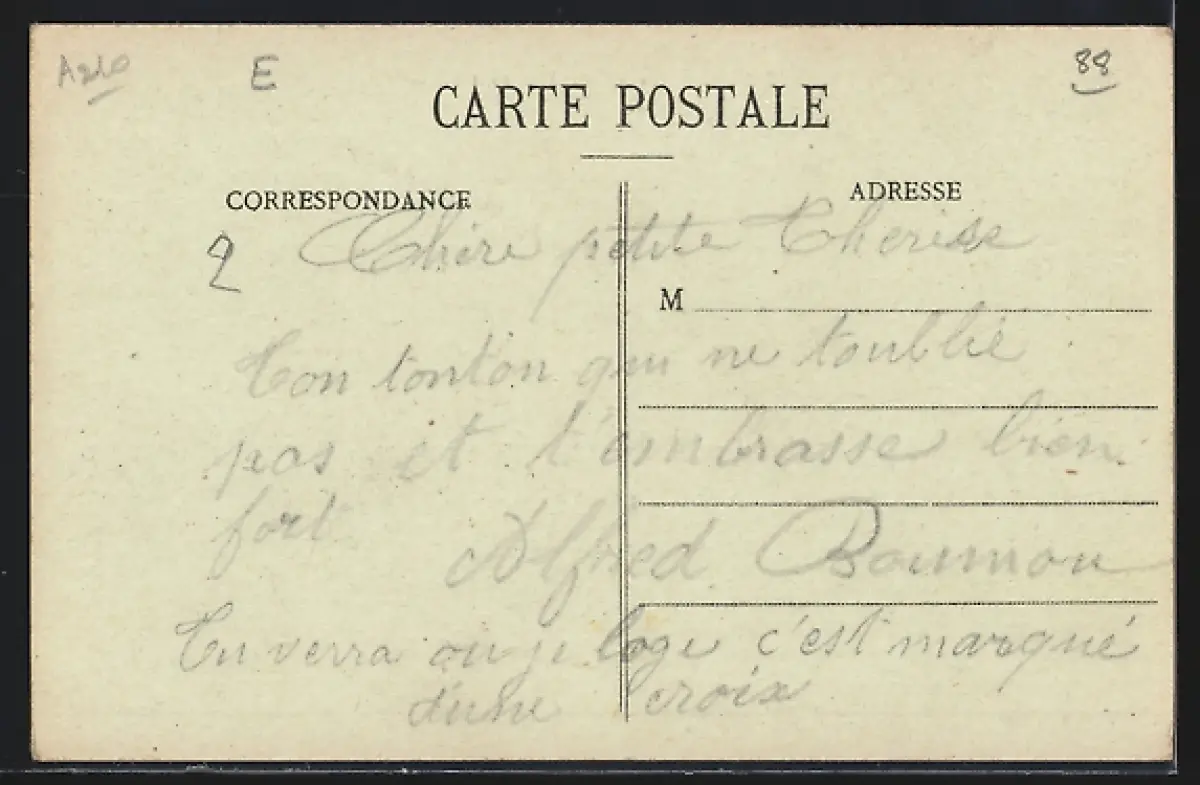 E
88
CARTE POSTALE
CORRESPONDANCE
ADRESSE
2 Chère petite Therese
M
Ton tonton qui ne toublie
pas et t'embrasse bien
fort
Alfred
Tu verra ou je loge c'est marqué
d'une croix